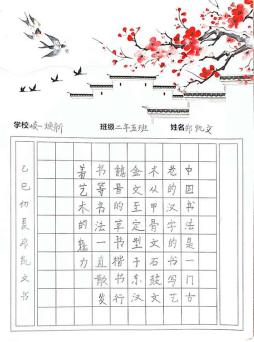 学校
班级 二年五班
姓名 郑凯文
中国书法是一门古
老的汉字的书写艺
术从甲骨文石鼓文
金文至定型于东汉
晋的草书楷书行
书等书法一直散发
着艺术的魅力
乙巳初夏郑凯文书